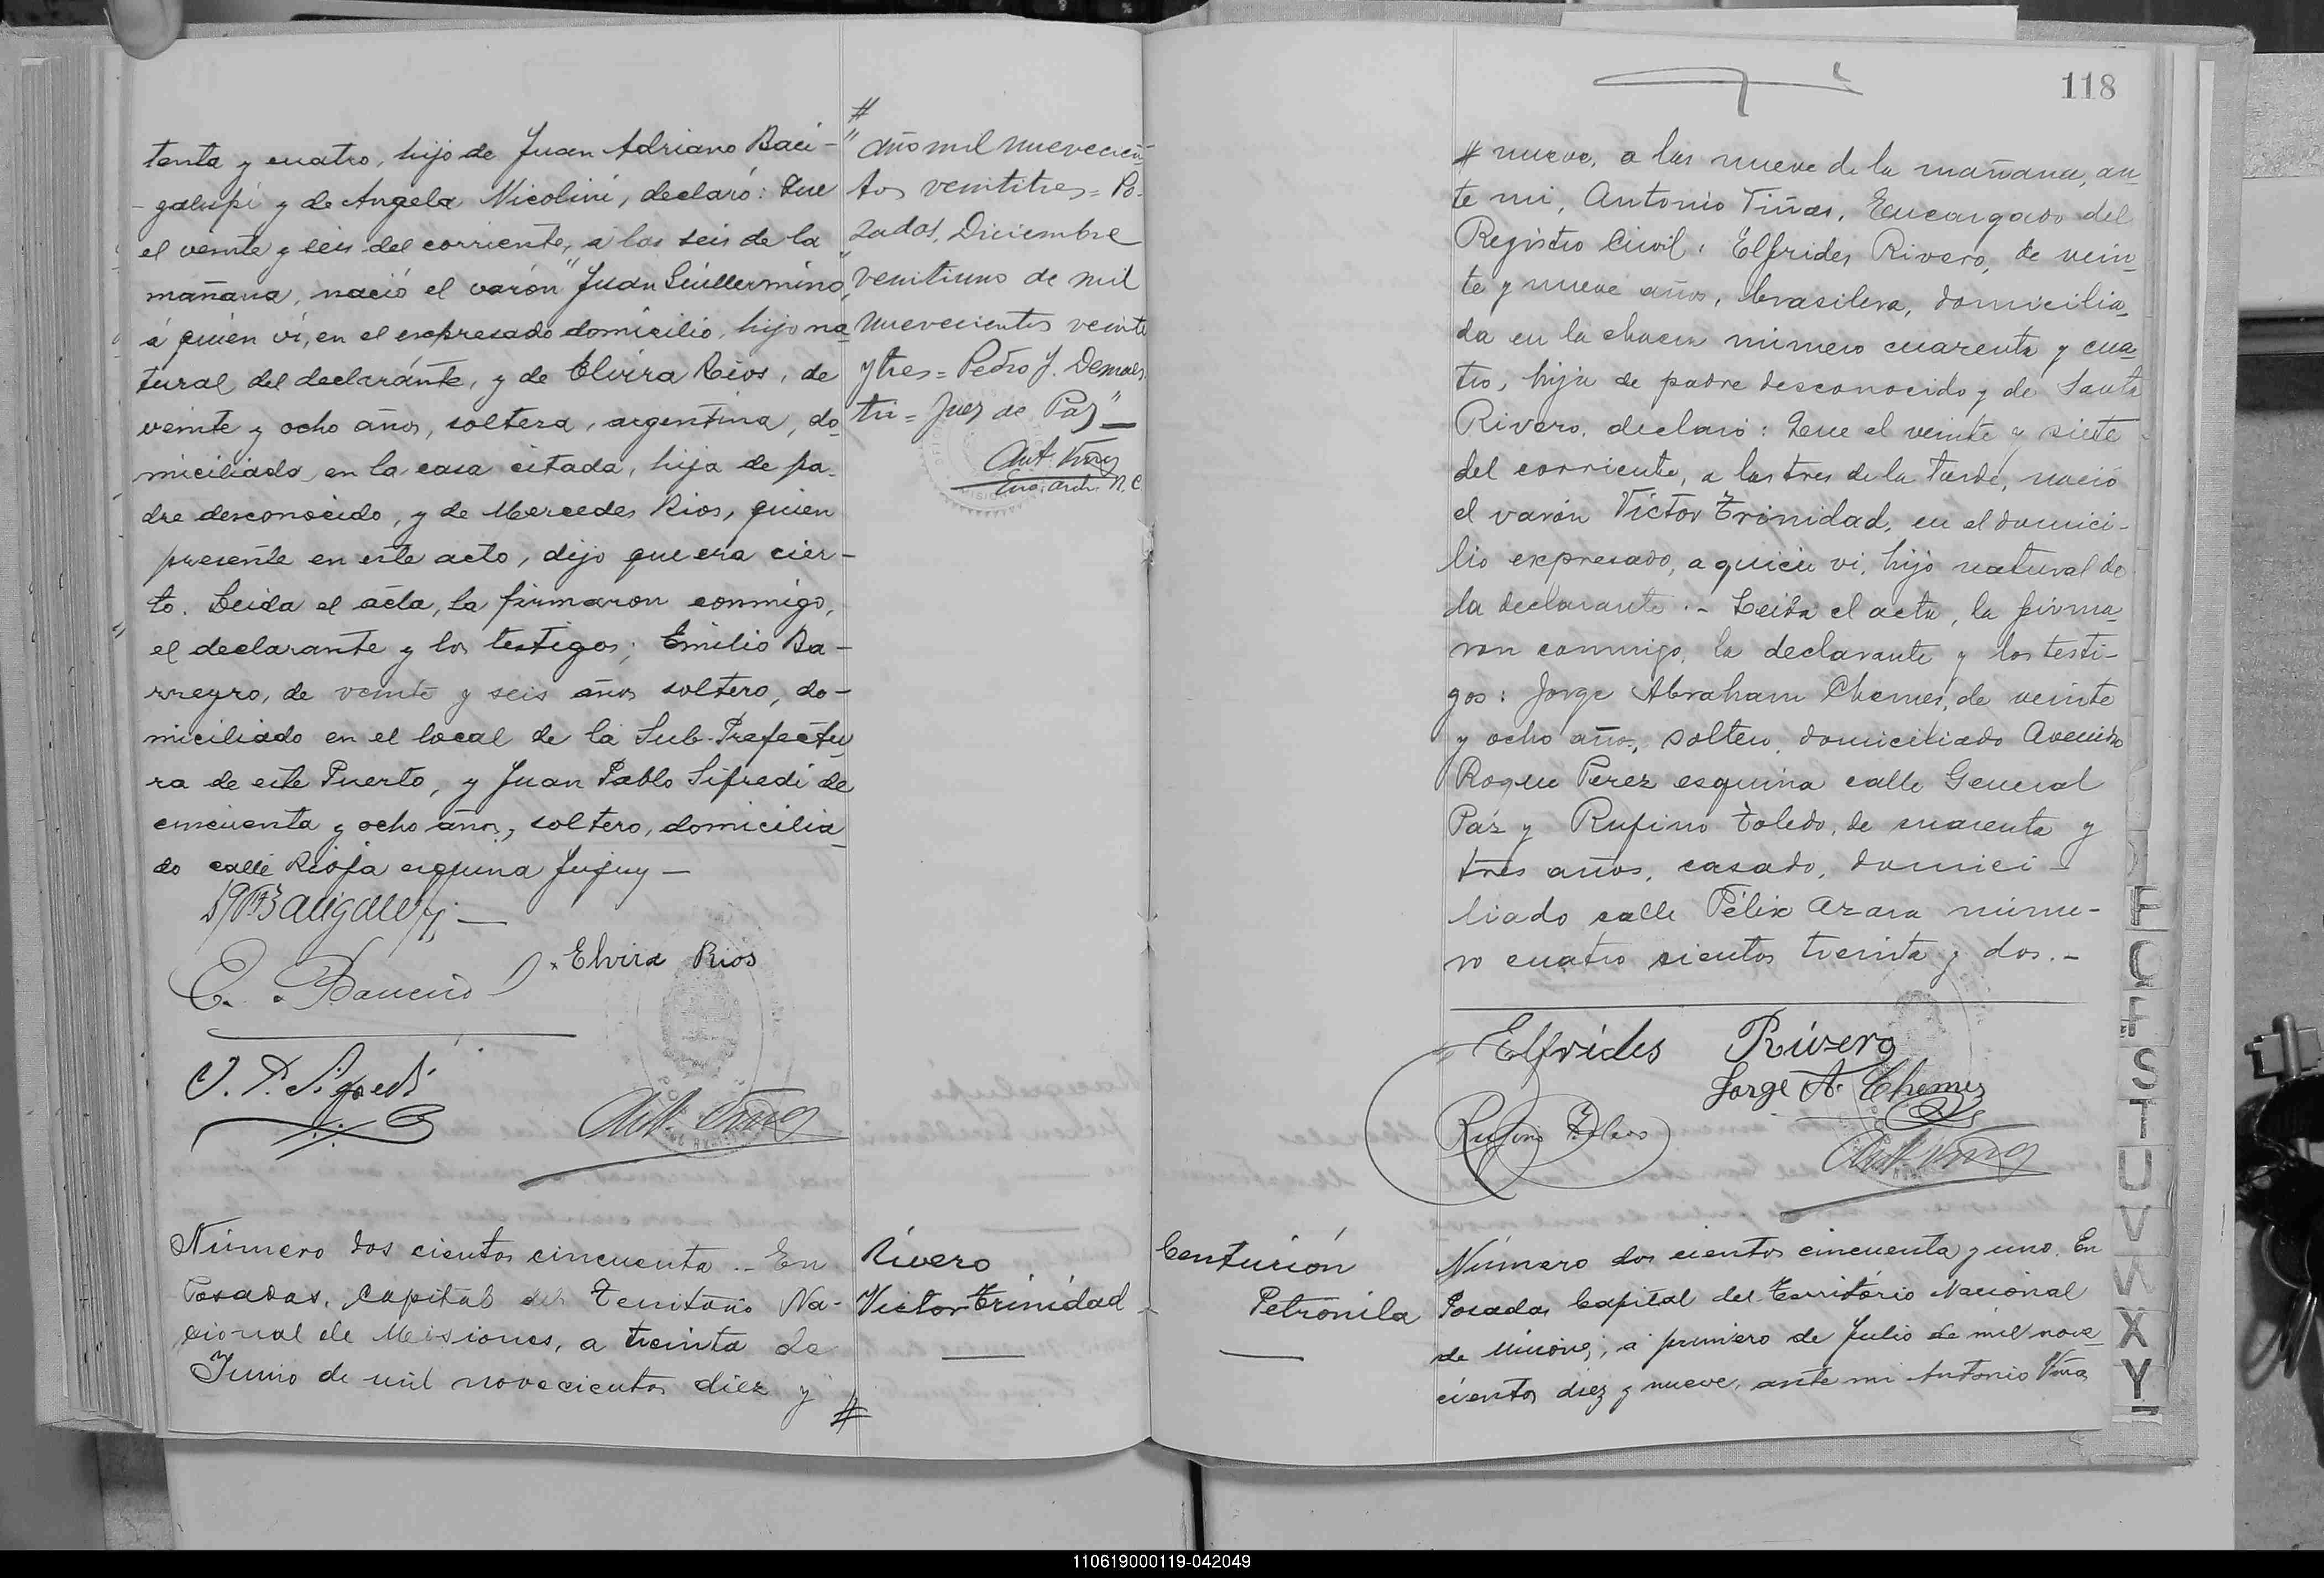 tenta y cuatro, hijo de Juan Adriano Baci-
galupi y de Angela Nicolini, declaró: Que
el veinte y seis del corriente, a las seis de la
mañana, nació el varón "Juan Guillermino,"
á quien vi, en el expresado domicilio, hijo na
tural del declaránte, y de Elvira Rios, de
veinte y ocho años, soltera, argentina, do
miciliada en la casa citada, hija de pa-
dre desconocido, y de Mercedes Rios, quien
presente en este acto, dijo que era cier-
to. Leida el acta, la firmaron conmigo,
el declarante y los testigos; Emilio Ba-
rreyro, de veinte y seis años soltero, do-
miciliado en el local de la Sub-Prefectu
ra de este Puerto, y Juan Pablo Sifredi de
cincuenta y ocho años, soltero, domicilia
do calle Rioja esquina Jujuy —
Elvira Rios
Número dos cientos cincuenta .- En
Posadas, Capital del Territorio Na-
cional de Misiones, a treinta de
Junio de mil novecientos diez y
#
#
" año mil nuevecien
tos veintitres = Po-
sadas, Diciembre
veintiuno de mil
nuevecientos veinte
y tres = Pedro J. Demaes
tri = Juez de Paz" —
Ant. Viñas
R. C.
Rivero
Victor Trinidad
118
# nueve, a las nueve de la mañana, an
te mi, Antonio Viñas, Encargado del
Registro Civil, Elfrides Rivero, de vein
te y nueve años, brasilera, domicilia
da en la chacra número cuarenta y cua
tro, hija de padre desconocido y de Santa
Rivero, declaró: Que el veinte y siete
del corriente, a las tres de la tarde, nació
el varón Víctor Trinidad, en el domici-
lio expresado, a quien vi, hijo natural de
la declarante .- Leida el acta, la firma
ron conmigo, la declarante y los testi-
gos: Jorge Abraham Chemes, de veinte
y ocho años, soltero, domiciliado Avenida
Roque Perez esquina calle General
Paz y Rufino Toledo, de cuarenta y
tres años, casado, domici-
liado calle Félix Azara núme-
ro cuatro cientos treinta y dos.-
Elfrides Rivero
Jorge A. Chemes
Rufino Toledo
Ant. Viñas
Centurión
Petronila
Número dos cientos cincuenta y uno. En
Posadas Capital del Território Nacional
de Misiones, a primero de Julio de mil nove
cientos diez y nueve, ante mi Antonio Viñas
F
Q
F
S
T
U
V
W
X
Y
110619000119-042049